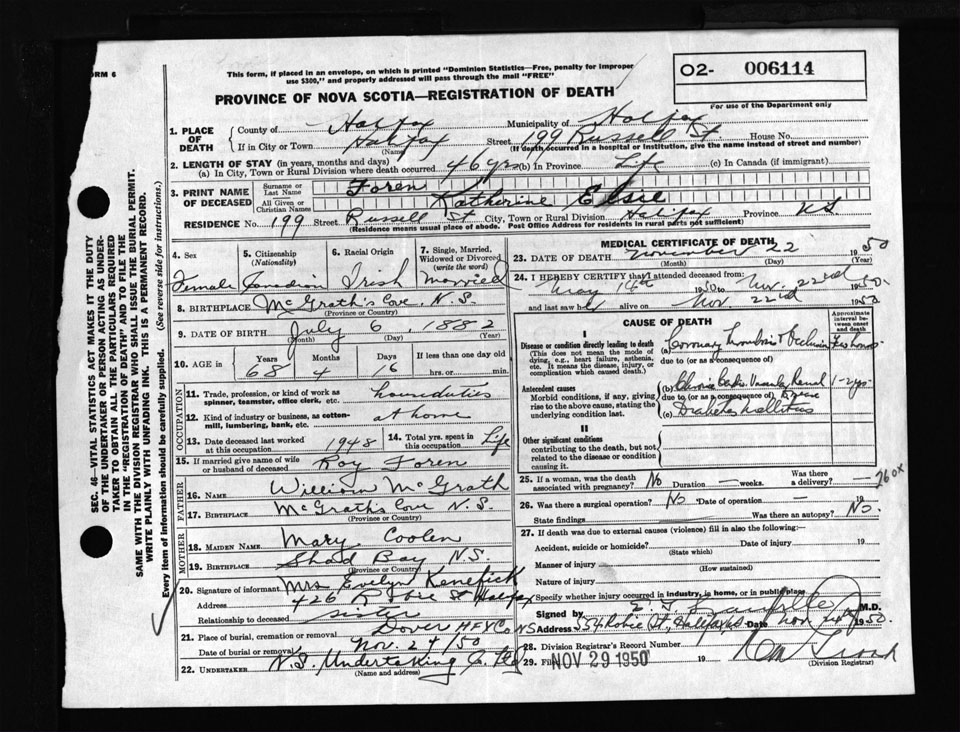 ORM 6
This form, if placed in an envelope, on which is printed "Dominion Statistics—Free, penalty for improper
use $300," and properly addressed will pass through the mail "FREE"
PROVINCE OF NOVA SCOTIA—REGISTRATION OF DEATH
O2- 006114
For use of the Department only
1. PLACE OF DEATH
County of Halifax Municipality of Halifax
If in City or Town Halifax Street 199 Russell St. House No.
(Name) (If death occurred in a hospital or Institution, give the name instead of street and number)
2. LENGTH OF STAY (in years, months and days)
(a) In City, Town or Rural Division where death occurred 46 yrs (b) In Province Life (c) In Canada (if immigrant)
3. PRINT NAME OF DECEASED
Surname or Last Name Foren
All Given or Christian Names Katherine Elsie
RESIDENCE No. 199 Street Russell St City, Town or Rural Division Halifax Province N.S.
(Residence means usual place of abode. Post Office Address for residents in rural parts not sufficient)
4. Sex Female
5. Citizenship (Nationality) Canadian
6. Racial Origin Irish
7. Single, Married, Widowed or Divorced (write the word) Married
8. BIRTHPLACE McGrath's Cove, N.S.
(Province or Country)
9. DATE OF BIRTH July 6, 1882
(Month) (Day) (Year)
10. AGE in Years 68 Months 4 Days 16 If less than one day old
hrs. or min.
OCCUPATION
11. Trade, profession, or kind of work as spinner, teamster, office clerk, etc. houseduties
12. Kind of industry or business, as cotton-mill, lumbering, bank, etc. at home
13. Date deceased last worked at this occupation 1948
14. Total yrs. spent in this occupation Life
15. If married give name of wife or husband of deceased Roy Foren
FATHER
16. Name William McGrath
17. Birthplace McGraths Cove N.S.
(Province or Country)
MOTHER
18. MAIDEN NAME Mary Coolen
19. BIRTHPLACE Shad Bay N.S.
(Province or Country)
20. Signature of informant Mrs Evelyn Kenefick
Address 426 Robie St Halifax
Relationship to deceased sister
21. Place of burial, cremation or removal Dover HFX Co NS
Date of burial or removal Nov. 24/50
22. UNDERTAKER N.S. Undertaking Co. Ltd
(Name and address)
MEDICAL CERTIFICATE OF DEATH
23. DATE OF DEATH November 22 1950
(Month) (Day)
24. I HEREBY CERTIFY that I attended deceased from:
May 14th 1950 to Nov. 22nd 1950.
and last saw h alive on Nov. 22nd 1950
CAUSE OF DEATH
Approximate interval between onset and death
I
Disease or condition directly leading to death
(This does not mean the mode of dying, e.g., heart failure, asthenia, etc. It means the disease, injury, or complication which caused death.)
(a) Coronary thrombosis + Occlusion few hours
due to (or as a consequence of)
Antecedent causes
Morbid conditions, if any, giving rise to the above cause, stating the underlying condition last.
(b) Chronic Cardio Vascular Renal Disease 1-2 yrs
due to (or as a consequence of)
(c) Diabetes Mellitus
II
Other significant conditions
contributing to the death, but not related to the disease or condition causing it.
25. If a woman, was the death associated with pregnancy? No Duration — weeks. Was there a delivery? —
260X
26. Was there a surgical operation? No Date of operation — 19
State findings Was there an autopsy? No.
27. If death was due to external causes (violence) fill in also the following:—
Accident, suicide or homicide? Date of injury 19
(State which)
Manner of injury
(How sustained)
Nature of injury
Specify whether injury occurred in industry, in home, or in public place
Signed by M.D.
Address 354 Robie St, Halifax Date Nov 1950.
28. Division Registrar's Record Number
29. Filed NOV 29 1950 19
(Division Registrar)
SEC. 46—VITAL STATISTICS ACT MAKES IT THE DUTY
OF THE UNDERTAKER OR PERSON ACTING AS UNDER-
TAKER TO OBTAIN ALL THE PARTICULARS REQUIRED
IN THE "REGISTRATION OF DEATH" AND TO FILE THE
SAME WITH THE DIVISION REGISTRAR WHO SHALL ISSUE THE BURIAL PERMIT.
WRITE PLAINLY WITH UNFADING INK. THIS IS A PERMANENT RECORD.
Every item of information should be carefully supplied. (See reverse side for instructions.)